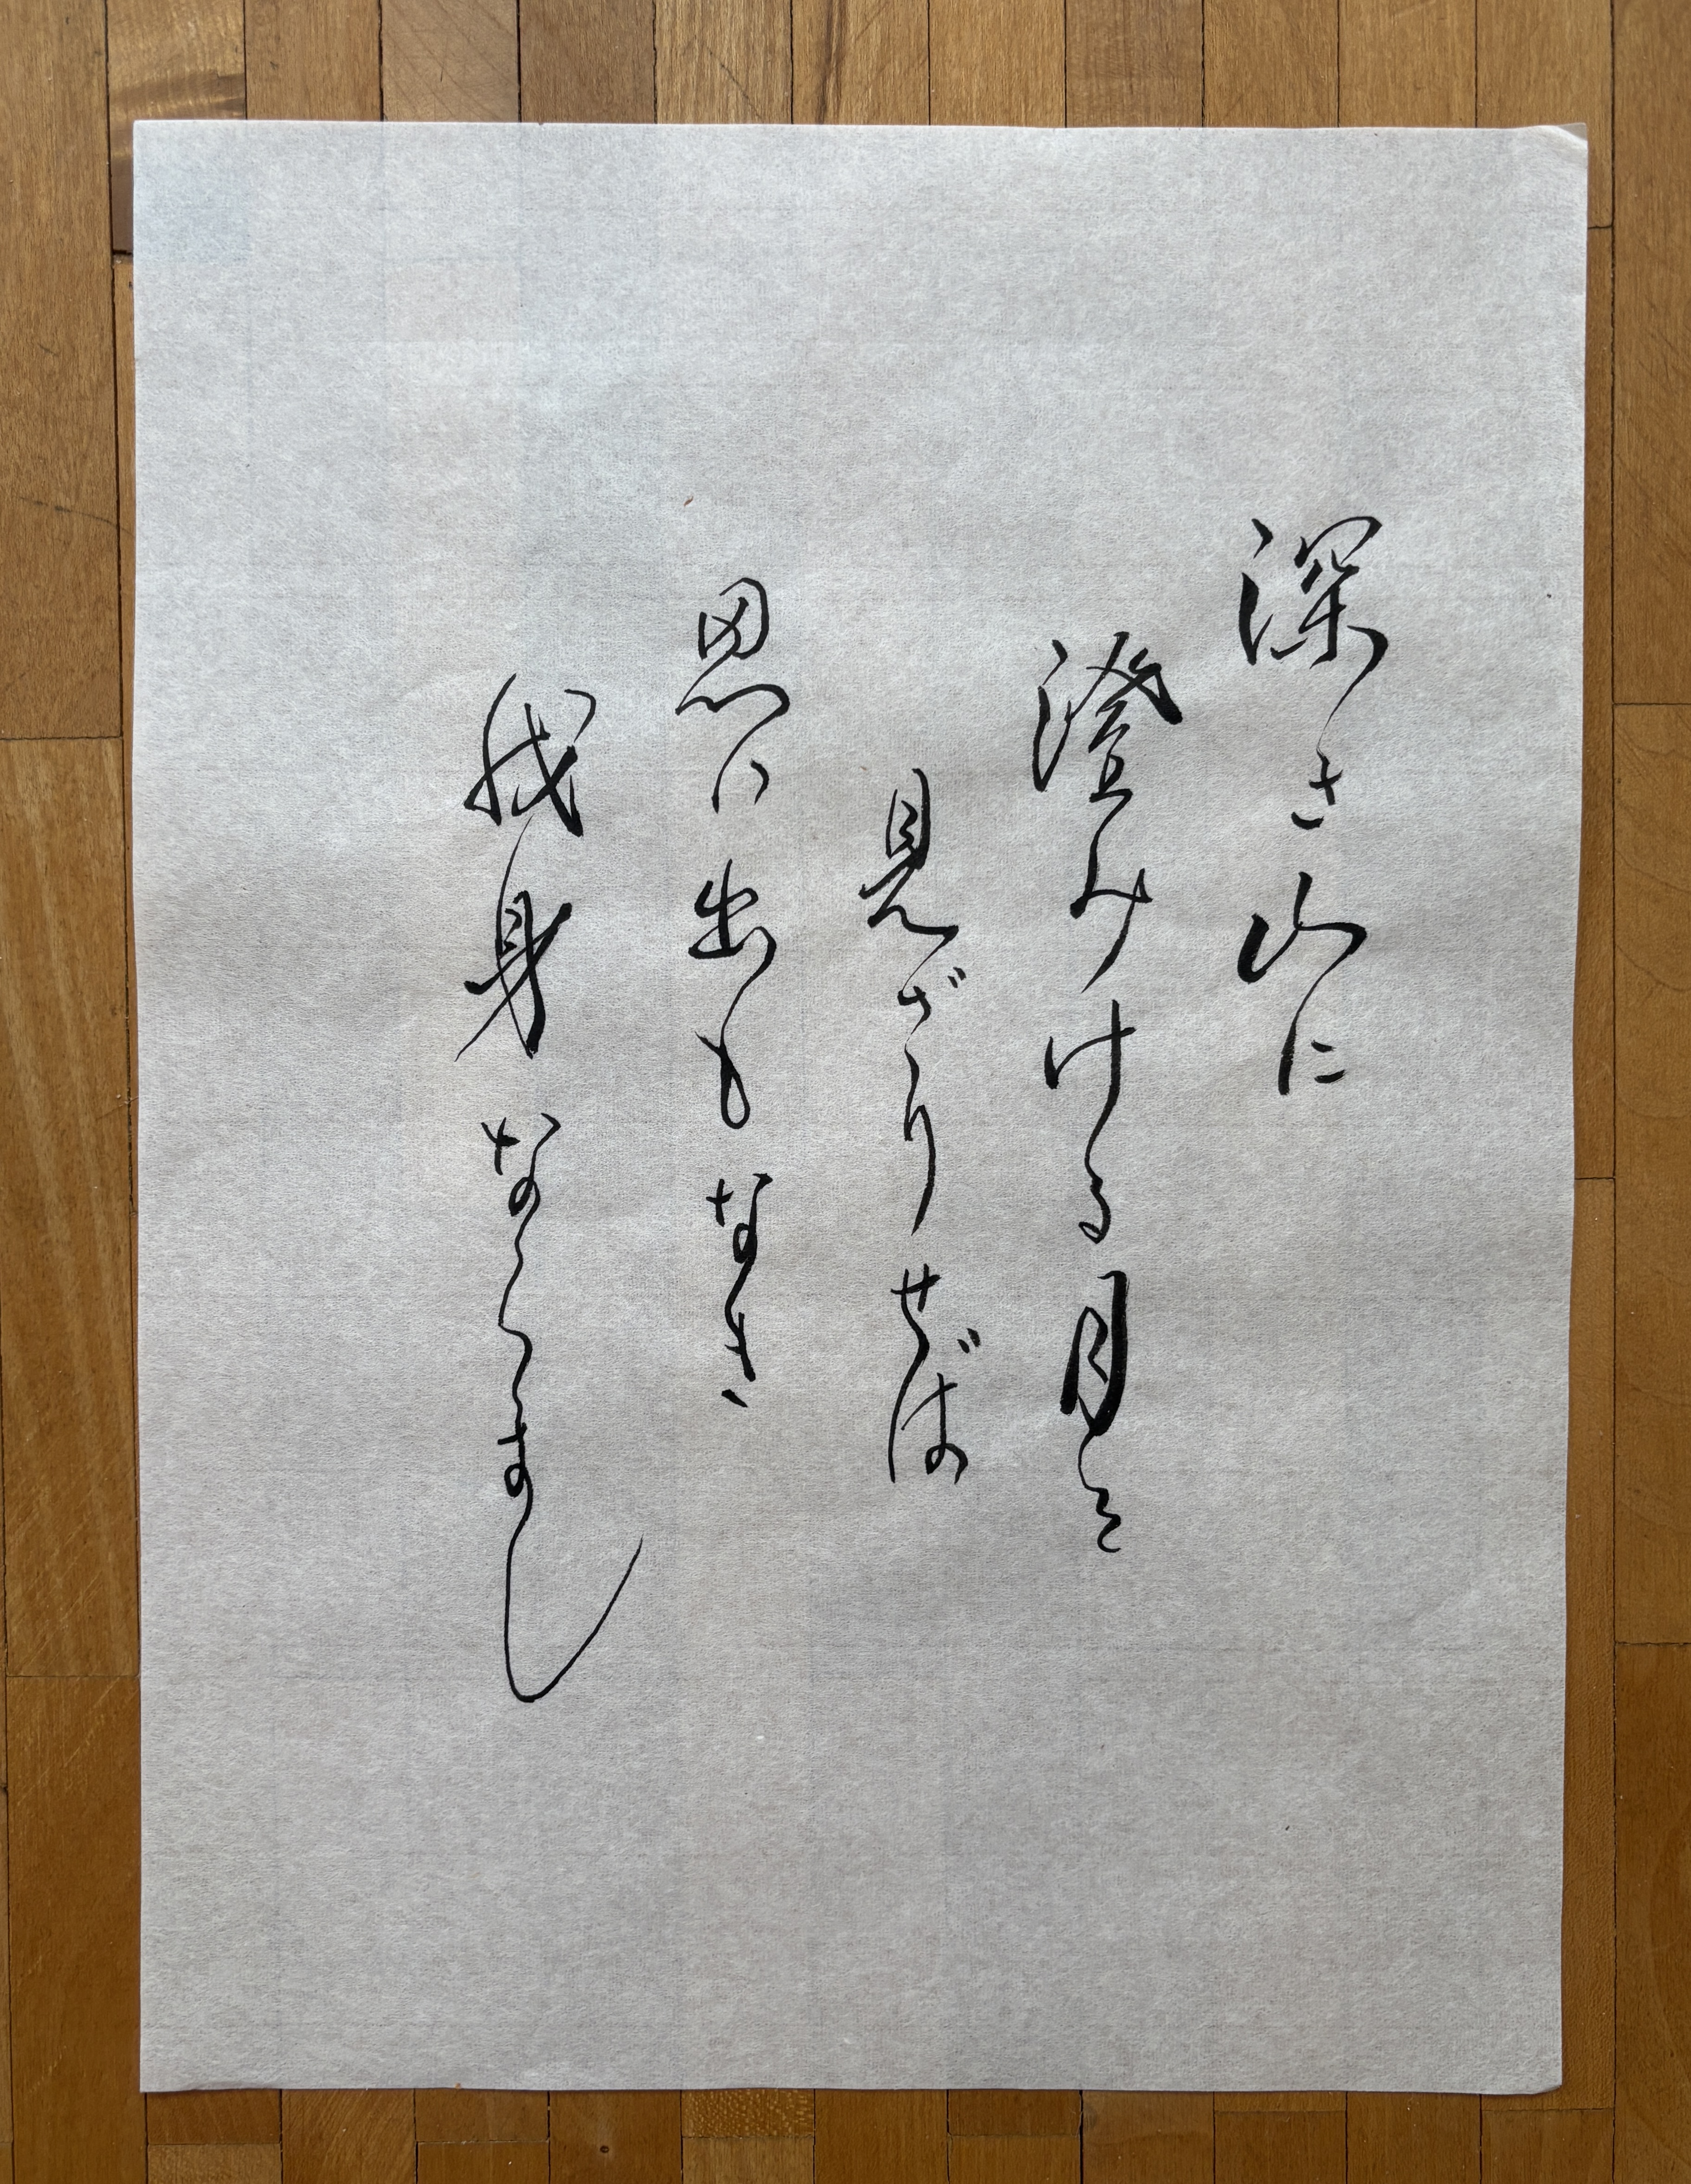 深き山に
澄みける月を
見ざりせば
思い出もなき
我身ならまし